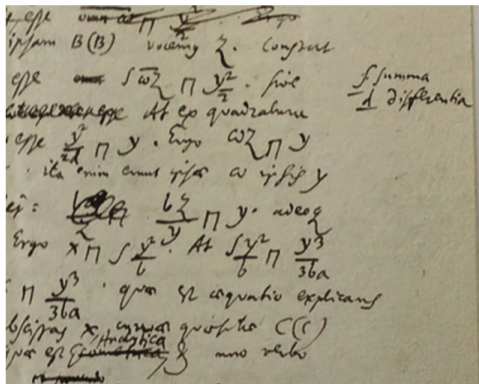 esse ⊓ y²/2 Ergo
ipsam B(B) vocemus z. Constat
esse ∫ω̅z̅ ⊓ y²/2. sive ∫ summa
At ex quadratura d differentia
esse y²/2d ⊓ y. Ergo ωz ⊓ y
ita enim erunt ipsae ω ipsis y
bz/y ⊓ y. adeoq
Ergo x ⊓ ∫y²/b. At ∫y²/b ⊓ y³/3ba
⊓ y³/3ba. quae est aequatio explicans
abscissas x, curvae quaesitae C(C)
Analytica
quae est uno verbo